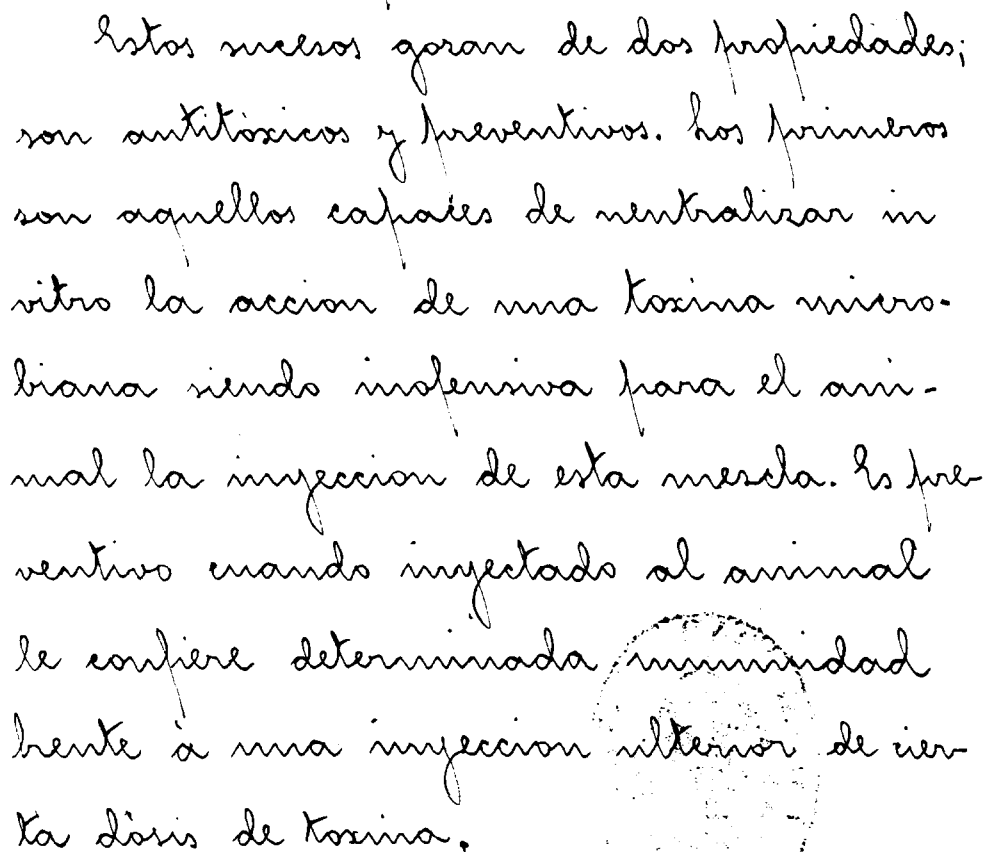 Estos sucesos gosan de dos propiedades;
son antitòxicos y preventivos. Los primeros
son aquellos capaces de neutralizar in
vitro la accion de una toxina micro-
biana siendo inofensiva para el ani-
mal la inyeccion de esta mescla. Es pre-
ventivo cuando inyectado al animal
le confiere determinada inmunidad
frente à una inyeccion ulterior de cier-
ta dòsis de toxina.